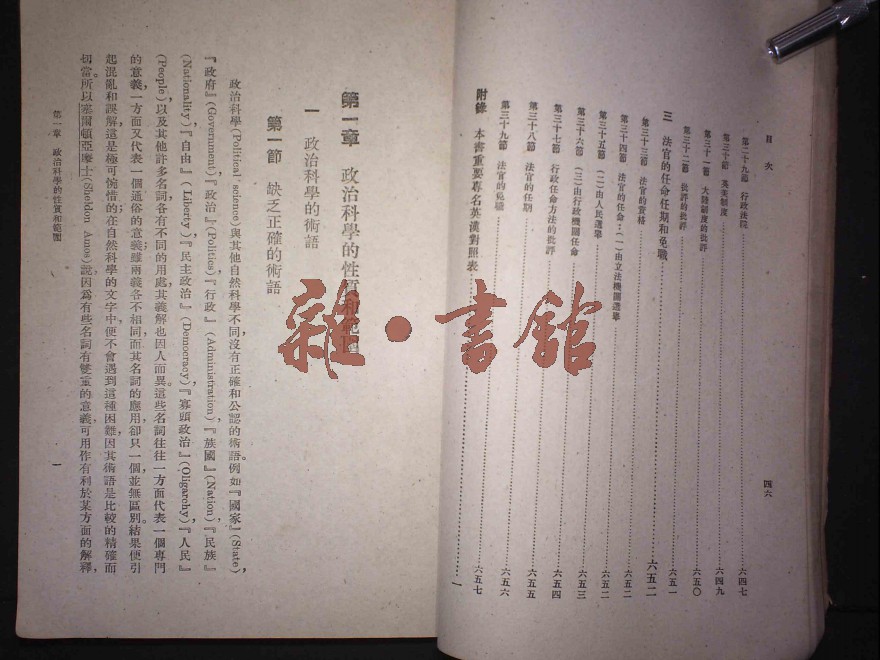 目次
四六
第二十九節 行政法院 六四七
第三十節 英美制度 六四九
第三十一節 大陸制度的批評 六五〇
第三十二節 批評的批評 六五一
三 法官的任命任期和免職 六五二
第三十三節 法官的資格
第三十四節 法官的任命:(一)由立法機關選舉 六五二
第三十五節 (二)由人民選舉 六五二
第三十六節 (三)由行政機關任命 六五三
第三十七節 行政任命方法的批評 六五四
第三十八節 法官的任期 六五五
第三十九節 法官的免職 六五六
附錄 本書重要專名英漢對照表 六五七
一
第一章 政治科學的性質和範圍
一 政治科學的術語
第一節 缺乏正確的術語
政治科學(Political science)與其他自然科學不同,沒有正確和公認的術語。例如『國家』(State),
『政府』(Government)『政治』(Politics)『行政』(Administration)『族國』(Nation)『民族』
(Nationality)『自由』(Liberty)『民主政治』(Democracy)『寡頭政治』(Oligarchy)『人民』
(People)以及其他許多名詞,各有不同的用處,其義解也因人而異。這些名詞往往一方面代表一個專門
的意義,一方面又代表一個通俗的意義;雖兩義各不相同,而其名詞的應用,卻只一個,並無區別。結果便引
起混亂和誤解,這是極可惋惜的;在自然科學的文字中,便不會遇到這種困難,因其術語是比較的精確而
切當。所以塞爾頓亞摩士(Sheldon Amos)說:因為有些名詞有雙重的意義,可用作有利於某方面的解釋,
第一章 政治科學的性質和範圍
一
雜·書館